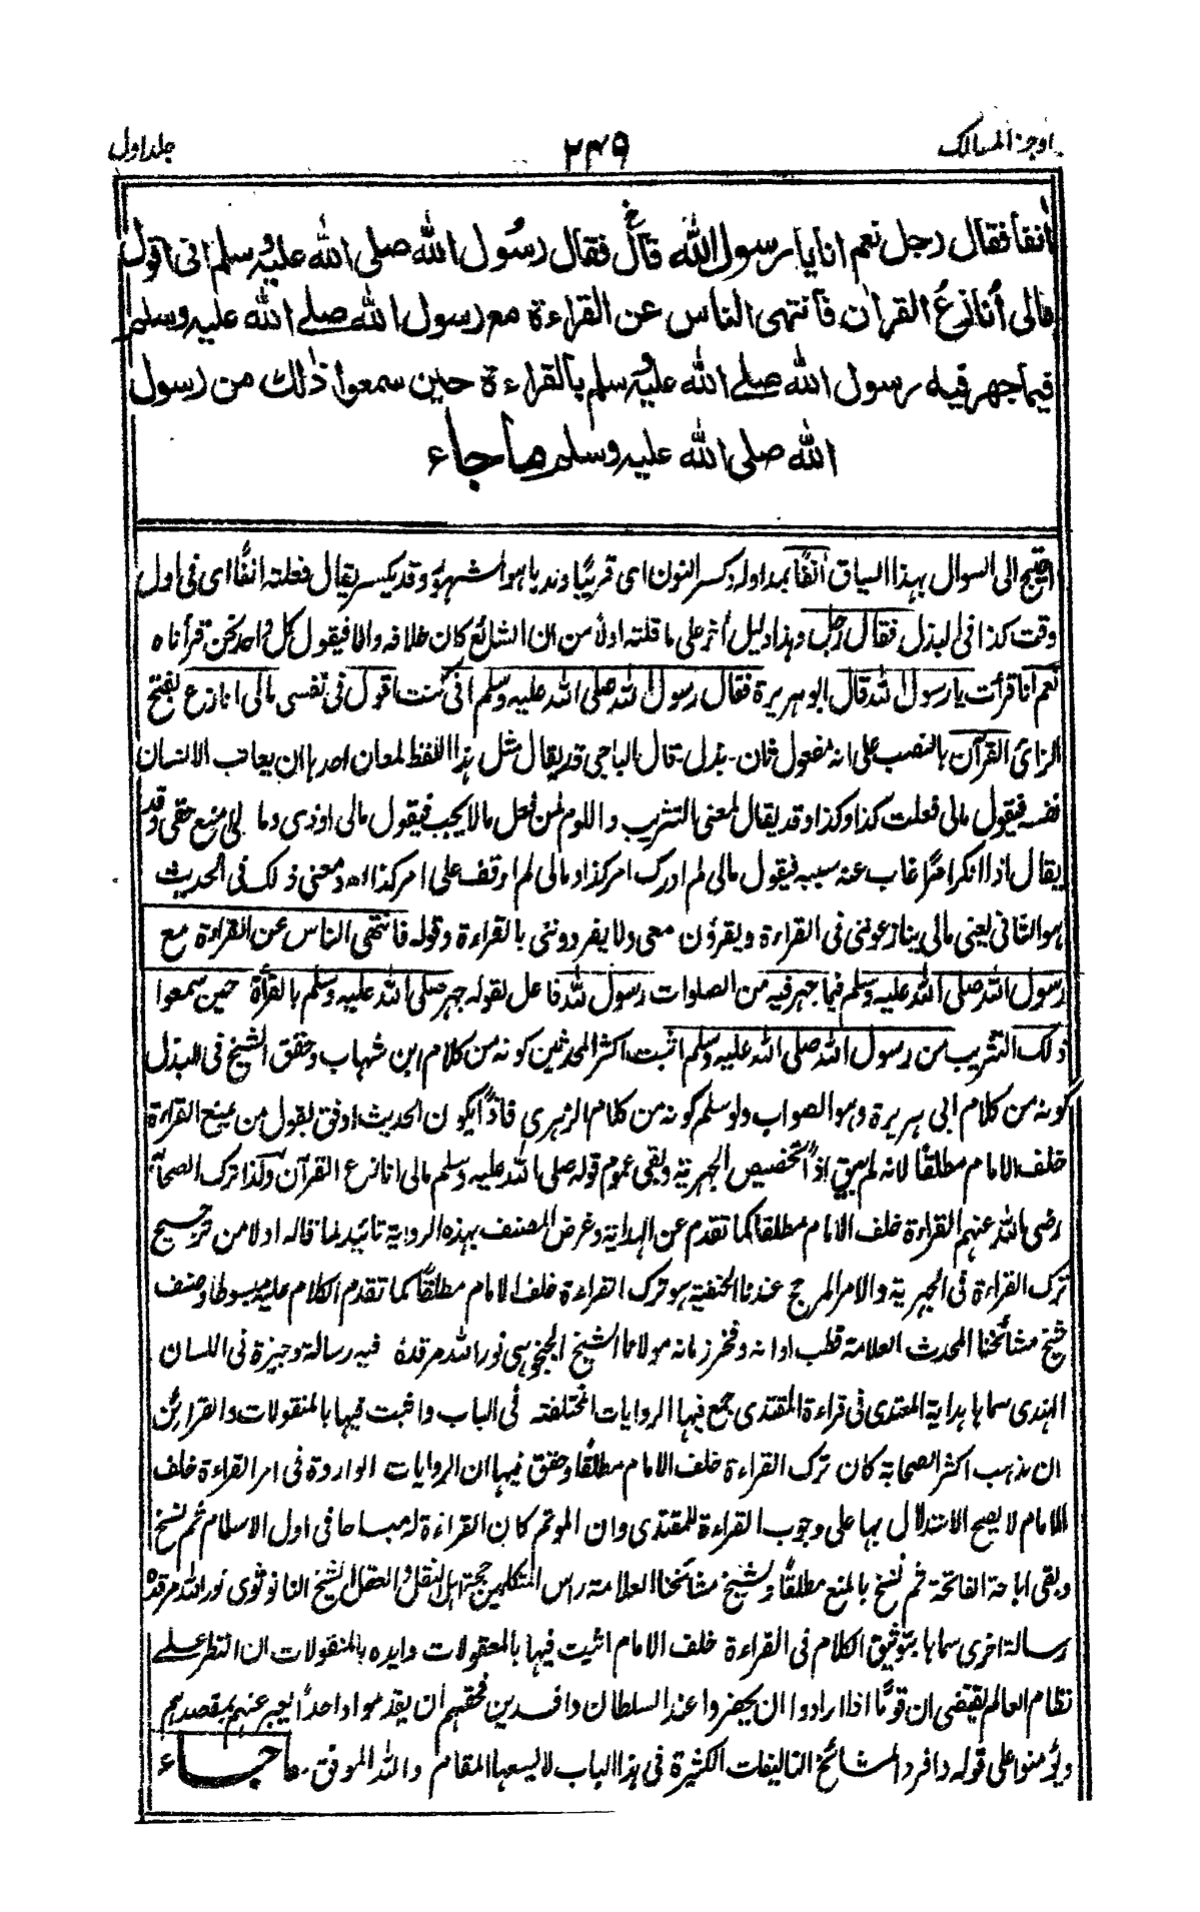 اوجز المسالك ٢٤٩ جلد اول
اٰنفا فقال رجل نعم انا يا رسول الله قال فقال رسول الله صلى الله عليه وسلم انى اقول
مالى أنازع القراٰن فانتهى الناس عن القراءة مع رسول الله صلے الله عليه وسلم
فيما جهر فيه رسول الله صلے الله عليه وسلم بالقراءة حين سمعوا ذٰلك من رسول
الله صلى الله عليه وسلم ماجاء
احتيج الى السوال بهذا السياق آنفًا بمد اوله وكسر النون اى قريبًا وندبا هو المشهور وقد يكسر يقال فعلته انفًا اى فى اول
وقت كذا فى البذل فقال رجل وهذا دليل آخر على ما قلته اولا من ان الشائع كان خلافه والا فيقول كل واحد نحن قرأناه
نعم انا قرأت يا رسول الله قال ابو هريرة فقال رسول الله صلى الله عليه وسلم انى كنت اقول فى نفسى مالى انازع بفتح
الزاى القرآن بالنصب على انه مفعول ثان - بذل - قال الباجى قد يقال مثل هذا اللفظ لمعان احدها ان يعاتب الانسان
نفسه فيقول مالى فعلت كذا وكذا وقد يقال لمعنى التثريب واللوم لمن فعل ما لا يجب فيقول مالى اوذى وما لى امنع حقى وقد
يقال اذا انكر امرًا غاب عنه سببه فيقول مالى لم ادرك امر كذا ومالى لم اوقف على امر كذا اھ ومعنى ذلك فى الحديث
هو الثانى يعنى مالى ينازعوننى فى القراءة ويقرؤن معى ولا يفردوننى بالقراءة وقوله فانتهى الناس عن القراءة مع
رسول الله صلى الله عليه وسلم فيما جهر فيه من الصلوات رسول الله فاعل لقوله جهر صلى الله عليه وسلم بالقرأة حين سمعوا
ذلك التثريب من رسول الله صلى الله عليه وسلم اثبت اكثر المحدثين كونه من كلام ابن شهاب وحقق الشيخ فى البذل
كونه من كلام ابى هريرة وهو الصواب ولو سلم كونه من كلام الزهرى فاذًا يكون الحديث اوفق بقول من يمنع القراءة
خلف الامام مطلقًا لانه لم يبق اذًا تخصيص الجهرية وبقى عموم قوله صلى الله عليه وسلم مالى انازع القرآن ولذا ترك الصحابة
رضى الله عنهم القراءة خلف الامام مطلقا كما تقدم عن الهداية وغرض المصنف بهذه الرواية تائيد لما قاله اولا من ترجيح
ترك القراءة فى الجهرية والامر المرجح عندنا الحنفية هو ترك القراءة خلف الامام مطلقًا كما تقدم الكلام عليه مبسوطا وصنف
شيخ مشائخنا المحدث العلامة قطب اوانه وفخر زمانه مولانا الشيخ الجنجوهى نور الله مرقدهٗ فيه رسالة وجيزة فى اللسان
الهندى سماها هداية المعتدى فى قراءة المقتدى جمع فيها الروايات المختلفة فى الباب واثبت فيها بالمنقولات والقرائن
ان مذهب اكثر الصحابة كان ترك القراءة خلف الامام مطلقًا وحقق فيها ان الروايات الواردة فى امر القراءة خلف
الامام لا يصح الاستدلال بها على وجوب القراءة للمقتدى وان الموتم كان القراءة له مباحا فى اول الاسلام ثم نسخ
وبقى اباحة الفاتحة ثم نسخ بالمنع مطلقًا ولشيخ مشائخنا العلامة راس المتكلمين حجة اهل النقل والعقل الشيخ النانوتوى نور الله مرقده
رسالة اخرى سماها بتوثيق الكلام فى القراءة خلف الامام اثبت فيها بالمعقولات وايده بالمنقولات ان النظر علے
نظام العالم يقتضى ان قومًا اذا ارادوا ان يحضروا عند السلطان وافدين فحقهم ان يقدموا واحدًا يعبر عنهم بمقصدهم
ويؤمنوا على قوله وافرد المشائخ التاليفات الكثيرة فى هذا الباب لا يسعها المقام والله الموفق - ماجاء